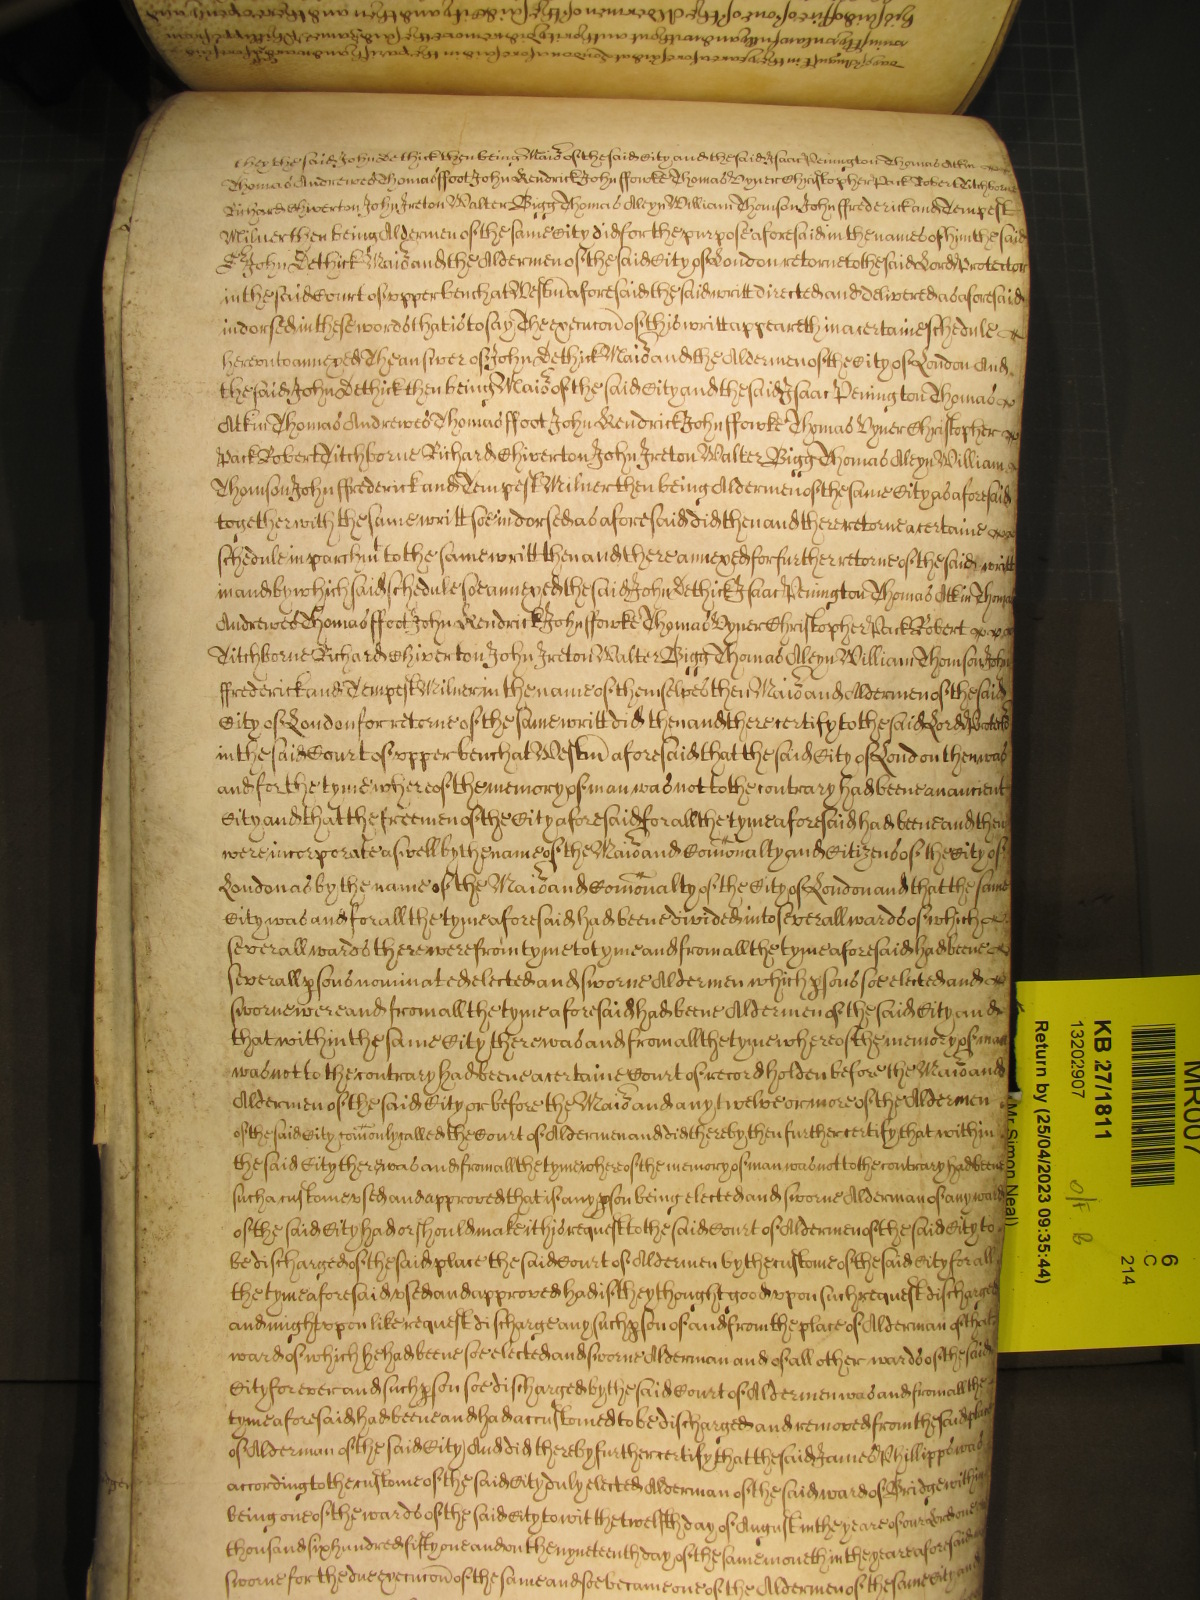 they the said John Dethick then being Maior of the said City and the said Isaac Penington Thomas Atkin
Thomas Andrewes Thomas ffoot John Kendrick John ffowke Thomas Vyner Christopher Pack Robert Titchborne
Richard Chiverton John Ireton Walter Bigg Thomas Aleyn William Thomson John ffrederick and Tempest
Milner then being Aldermen of the same City did for the purpose aforesaid in the names of him the said
John Dethick Maior and the Aldermen of the said City of London retorne to the said Lord Protector
in the said Court of upper bench at Westm aforesaid the said writt directed and delivered as aforesaid
indorsed in these words that is to say The execucon of this writt appeareth in a certaine schedule
hereunto annexed The answer of John Dethick Maior and the Aldermen of the City of London And
the said John Dethick then being Maior of the said City and the said Isaac Penington Thomas
Atkin Thomas Andrewes Thomas ffoot John Kendrick John ffowke Thomas Vyner Christopher
Pack Robert Titchborne Richard Chiverton John Ireton Walter Bigg Thomas Aleyn William
Thomson John ffrederick and Tempest Milner then being Aldermen of the same City as aforesaid
together with the same writt soe indorsed as aforesaid did then and there retorne a certaine
schedule in parchmt to the same writt then and there annexed for further retorne of the said writt
in and by which said schedule soe annexed the said John Dethick Isaac Penington Thomas Atkin Thomas
Andrewes Thomas ffoot John Kendrick John ffowke Thomas Vyner Christopher Pack Robert
Titchborne Richard Chiverton John Ireton Walter Bigg Thomas Aleyn William Thomson John
ffrederick and Tempest Milner in the name of themselves then Maior and Aldermen of the said
City of London for retorne of the same writt did then and there certify to the said Lord Protector
in the said Court of upper bench at Westm aforesaid that the said City of London then was
and for the tyme whereof the memory of man was not to the contrary had beene an ancient
City and that the freemen of the City aforesaid for all the tyme aforesaid had beene and then
were incorporate aswell by the name of the Maior and Comonalty and Citizens of the City of
London as by the name of the Maior and Comonalty of the City of London and that the same
City was and for all the tyme aforesaid had beene divided into severall wards of which
severall wards there were from tyme to tyme and from all the tyme aforesaid had beene
severall psons nominated elected and sworne Aldermen which psons soe elected and
sworne were and from all the tyme aforesaid had beene Aldermen of the said City and
that within the same City there was and from all the tyme whereof the memory of man
was not to the contrary had beene a certaine Court of record holden before the Maior and
Aldermen of the said City or before the Maior and any twelve or more of the Aldermen
of the said City comonly called the Court of Aldermen and did thereby then further certify that within
the said City there was and from all the tyme whereof the memory of man was not to the contrary had beene
such a custome used and approved that if any pson being elected and sworne Alderman of any ward
of the said City had or should make it his request to the said Court of Aldermen of the said City to
be discharged of the said place the said Court of Aldermen by the custome of the said City for all
the tyme aforesaid used and approved had if they thought good upon such request discharged
and might upon like request discharge any such pson of and from the place of Alderman of that
ward of which he had beene soe elected and sworne Alderman and of all other wards of the said
City for ever and such pson soe discharged by the said Court of Aldermen was and from all the
tyme aforesaid had beene and had accustomed to be discharged and removed from the said place
of Alderman of the said City And did thereby further certify that the said James Phillipps was
according to the custome of the said City duly elected Alderman of the said ward of Bridge within
being one of the wards of the said City to wit the twelfth day of August in the yeare of our Lord one
thousand six hundred fifty one and on the nyneteenth day of the same moneth in the yeare aforesaid
sworne for the due execucon of the same and soe became one of the Aldermen of the same City and
MR007
6
C
214
KB 27/1811
13202907
O/F B
Return by (25/04/2023 09:35:44)
(Mr Simon Neal)